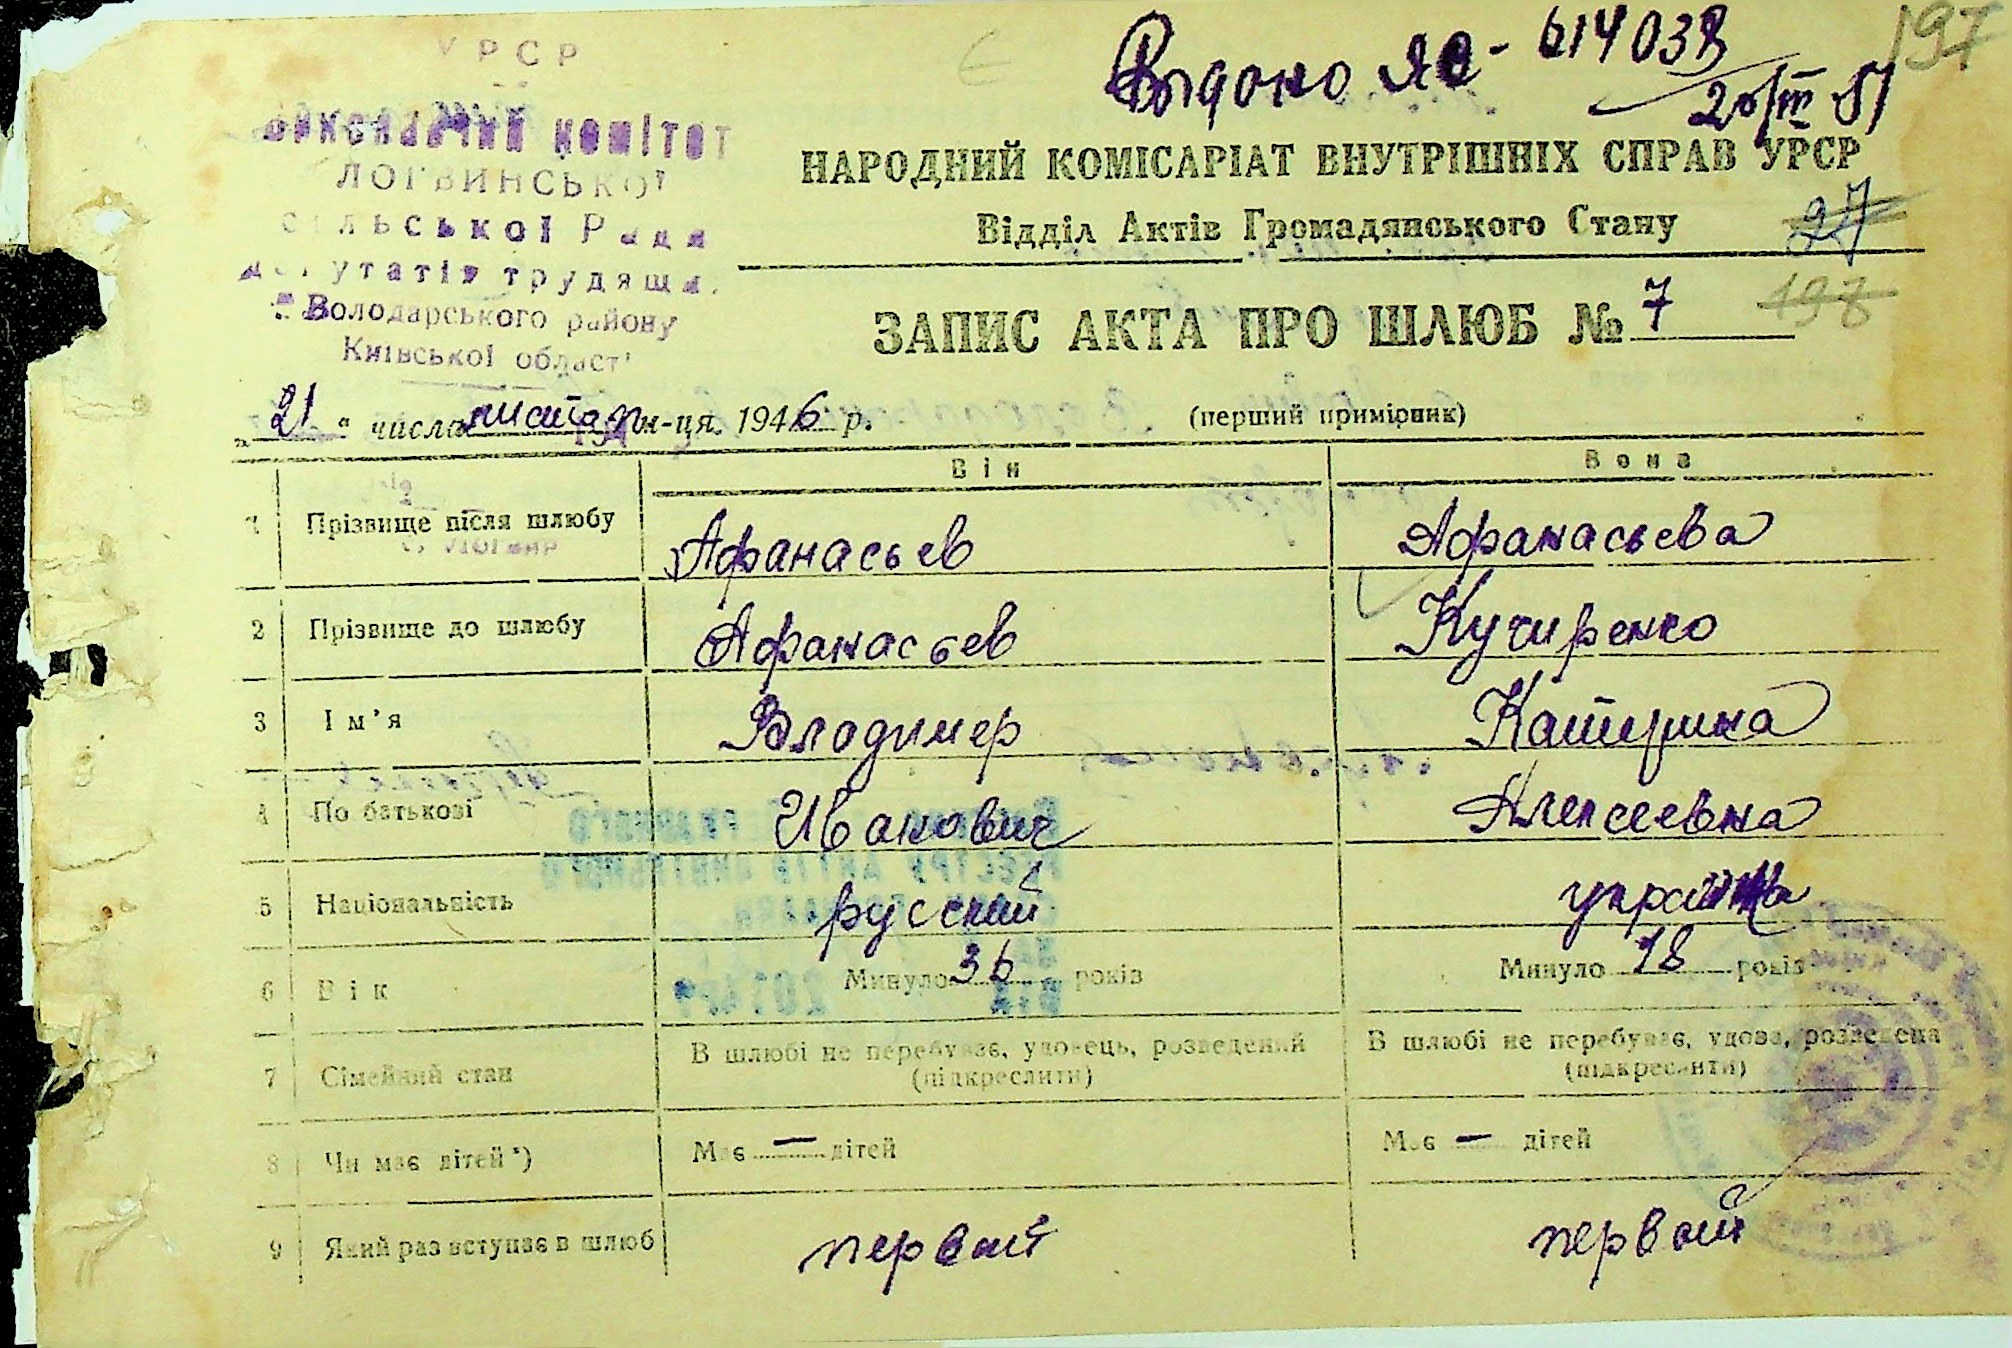 197
Выдоно ЯО- 614038
20/III 51
УРСР
виконавчий комітет
ЛОГВИНСЬКОІ
сільської Ради
депутатів трудящ.
Володарського району
Київської област
НАРОДНИЙ КОМІСАРІАТ ВНУТРІШНІХ СПРАВ УРСР
Відділ Актів Громадянського Стану 27
ЗАПИС АКТА ПРО ШЛЮБ № 7 198
„ 21 " числа листап м-ця. 1946 р. (перший примірник)
Він Вона
1 Прізвище після шлюбу Афанасьев Афанасьева
2 Прізвище до шлюбу Афанасьев Кучиренко
3 Ім'я Владимер Катерина
4 По батькові Иванович Алексеевна
5 Національність русский
6 Вік Минуло 36 років Минуло 18 років
7 Сімейний стан В шлюбі не перебуває, удовець, розведений В шлюбі не перебуває, удова, розведена
(підкреслити) (підкреслити)
8 Чи має дітей *) Має — дітей Має — дітей
9 Який раз вступає в шлюб первый первый